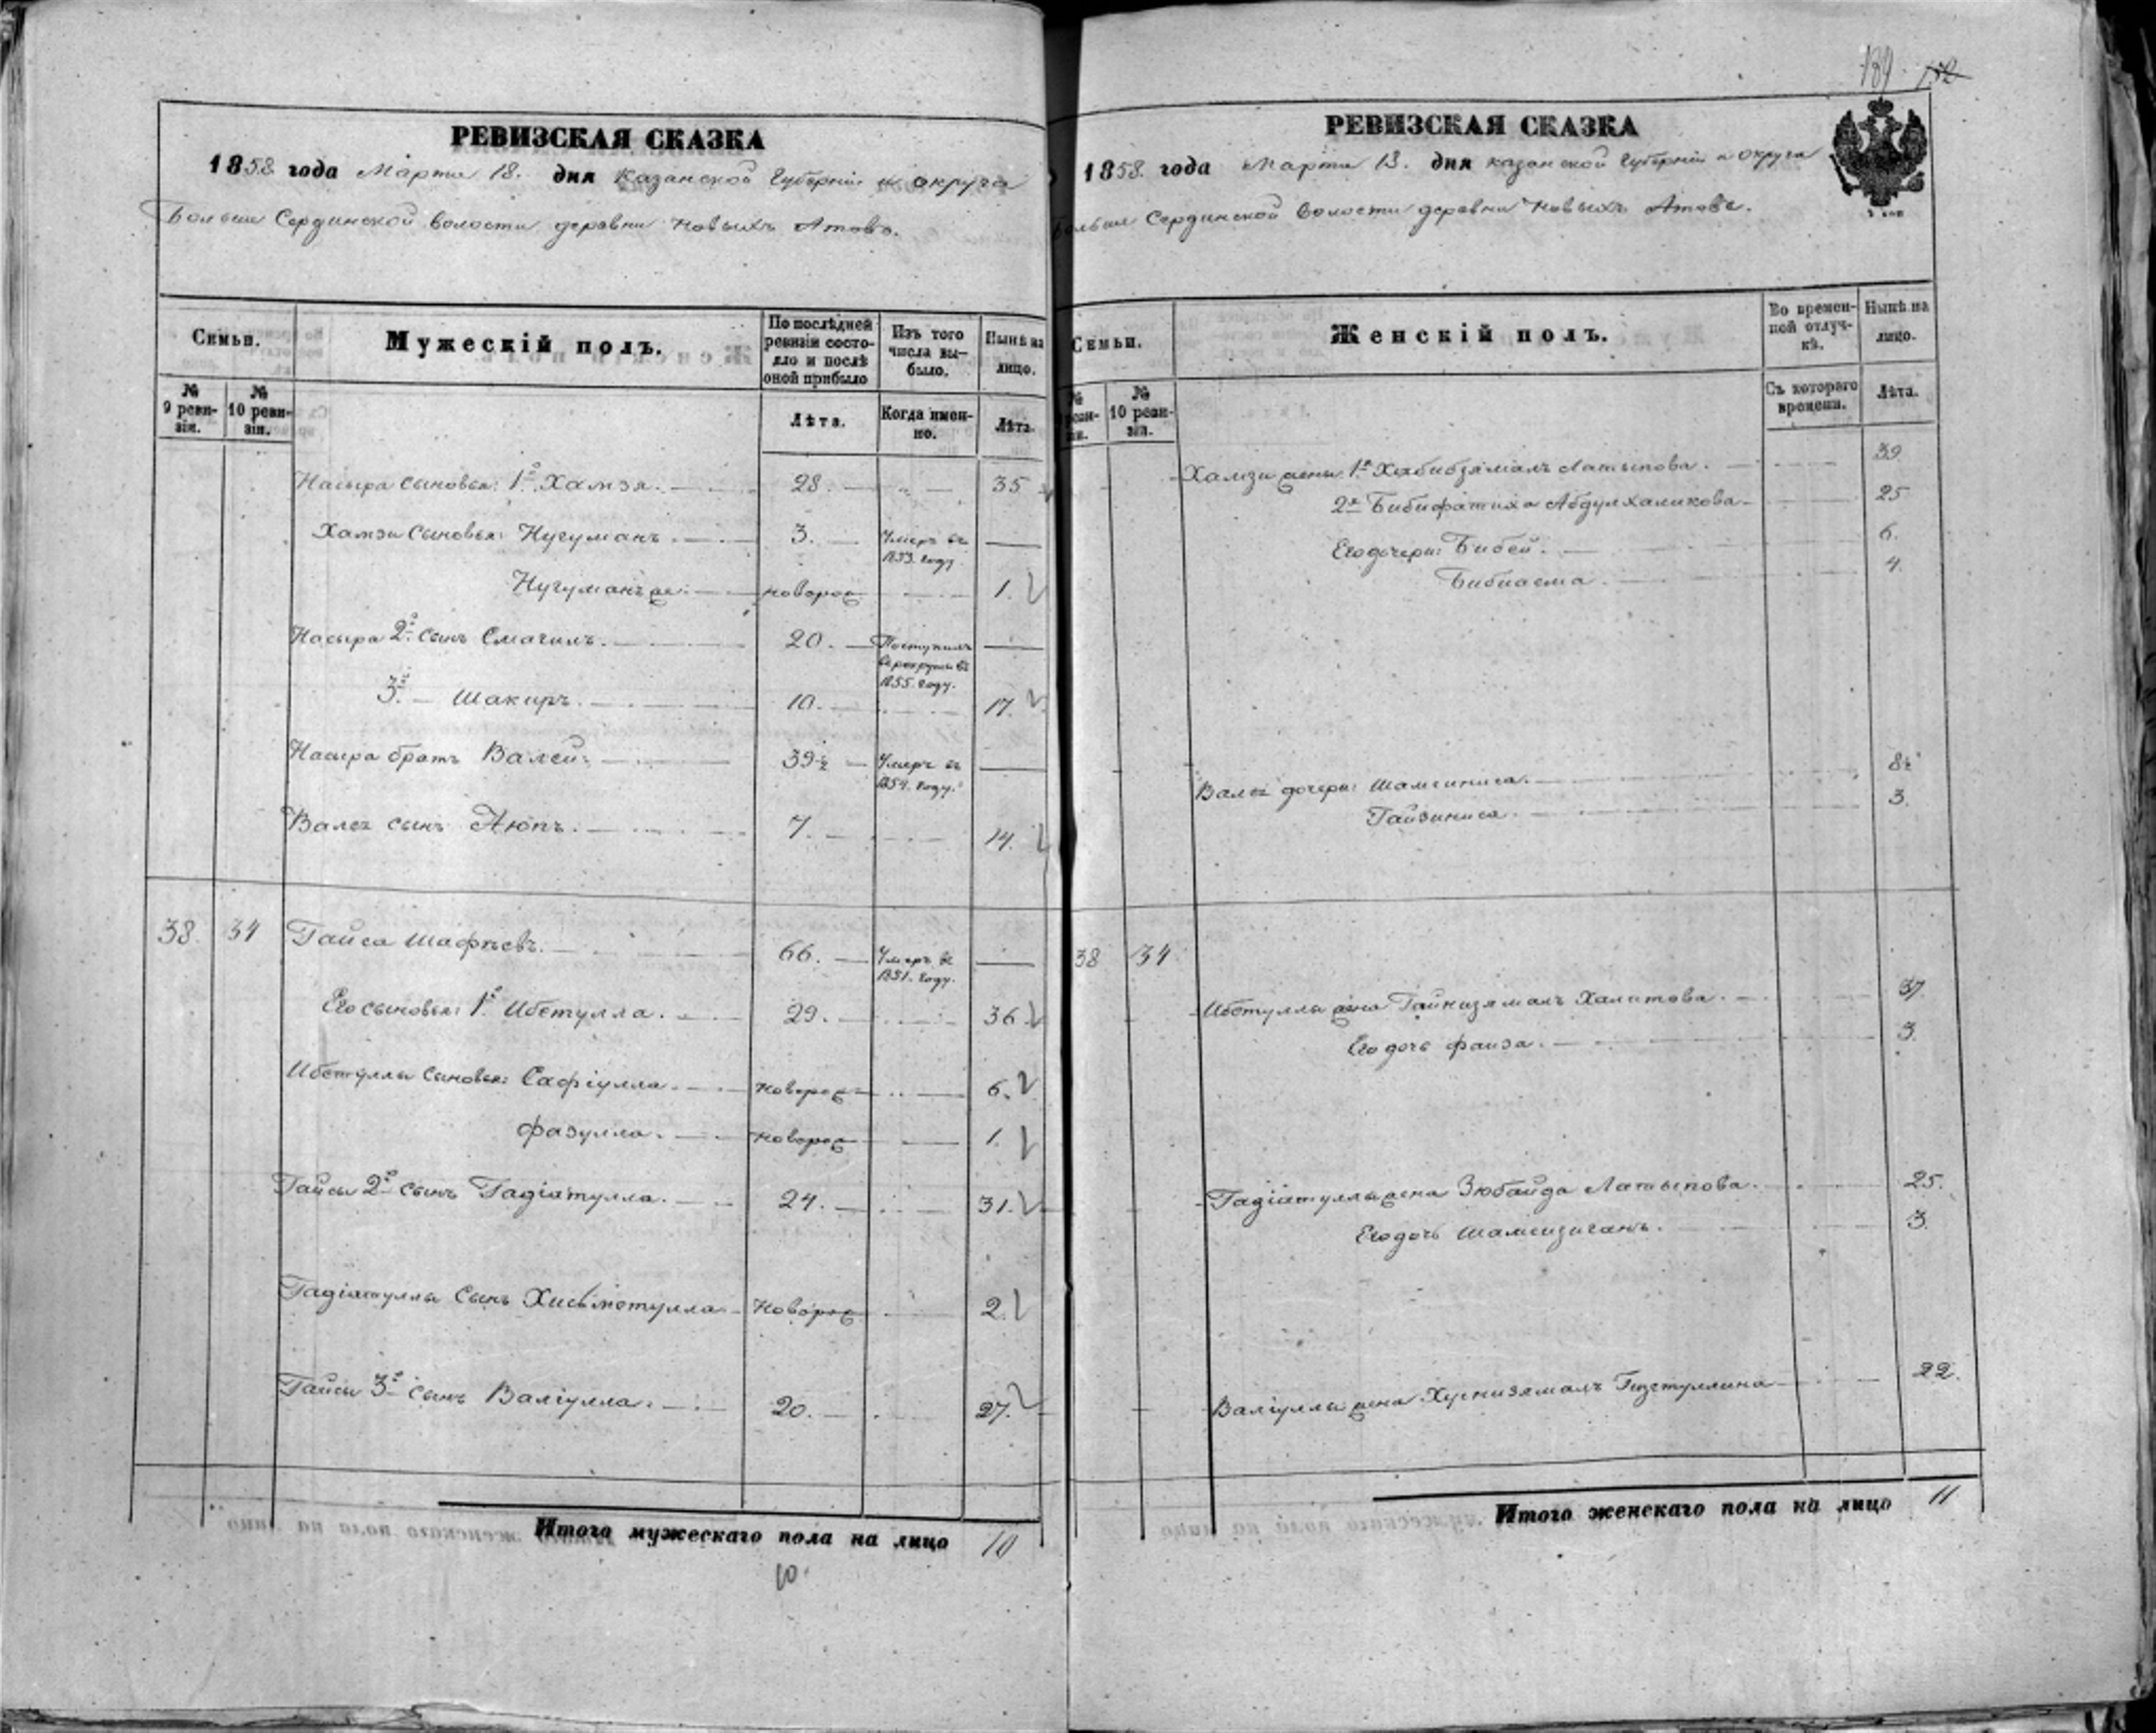 РЕВИЗСКАЯ СКАЗКА
1858 года Марта 18. дня Казанской Губернiи и округа
Больше Сердинской волости деревни Новыхъ Атовъ.
Семьи.
Мужескiй полъ.
По послѣдней ревизiи состояло и послѣ оной прибыло
Изъ того числа выбыло.
Нынѣ на лицо.
№ 9 ревизiи.
№ 10 ревизiи.
Лѣта.
Когда именно.
Лѣта.
Насыра сыновья: 1й Хамзя. 28. 35
Хамзи сыновья: Нугуманъ. 3. Умеръ въ 1853. году
Нугуманъ же: новорож 1.
Насыра 2й сынъ Смагилъ. 20. Поступилъ въ рекруты въ 1855. году.
3й Шакиръ. 10. 17.
Насыра братъ Валей: 39½ Умеръ въ 1854. году.
Валея сынъ Аюпъ. 7. 14.
38. 34 Гайса Шафѣевъ. 66. Умеръ въ 1851. году.
Его сыновья: 1й Ибетулла. 29. 36
Ибетуллы сыновья: Сафiулла. новорож 6.
Фазулла. новорож 1.
Гайсы 2й сынъ Гадiатулла. 24. 31.
Гадiатуллы сынъ Хисьметулла. новорож 2
Гайсы 3й сынъ Валiулла. 20. 27.
Итого мужескаго пола на лицо 10
10.
189. 152
РЕВИЗСКАЯ СКАЗКА
1858. года Марта 18. дня Казанской Губернiи и округа
Больше Сердинской волости деревни Новыхъ Атовъ.
Семьи.
Женскiй полъ.
Во временной отлучкѣ.
Нынѣ на лицо.
№ ревизiи.
№ 10 ревизiи.
Съ котораго времени.
Лѣта.
Хамзи жены 1я Хабибзямалъ Латыпова. 39
2я Бибифатиха Абдулхаликова 25
Его дочери: Бибей. 6.
Бибиасма. 4.
Валея дочери: Шамсиниса. 8½
Гайзиниса. 3.
38 34
Ибетуллы жена Гайнизямалъ Халитова. 37.
Его дочь Фаиза. 3.
Гадiатуллы жена Зюбайда Латыпова. 25.
Его дочь Шамсизиганъ. 3.
Валiуллы жена Хуснизямалъ Гизетуллина 22.
Итого женскаго пола на лицо 11